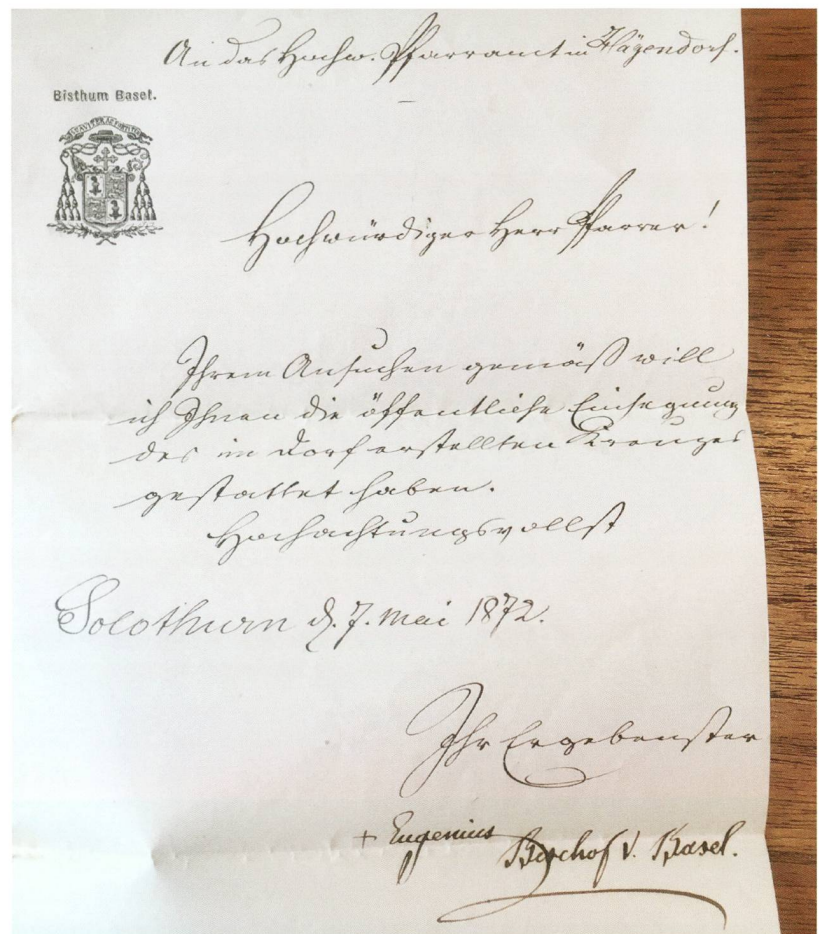 An das Hochw. Pfarramt in Hägendorf.
Bisthum Basel.
Hochwürdiger Herr Pfarrer!
Ihrem Ansuchen gemäß will
ich Ihnen die öffentliche Einsegnung
des im Dorf erstellten Kreuzes
gestattet haben.
Hochachtungsvollst
Solothurn d. 7. Mai 1872.
Ihr Ergebenster
+ Eugenius
Bischof v. Basel.